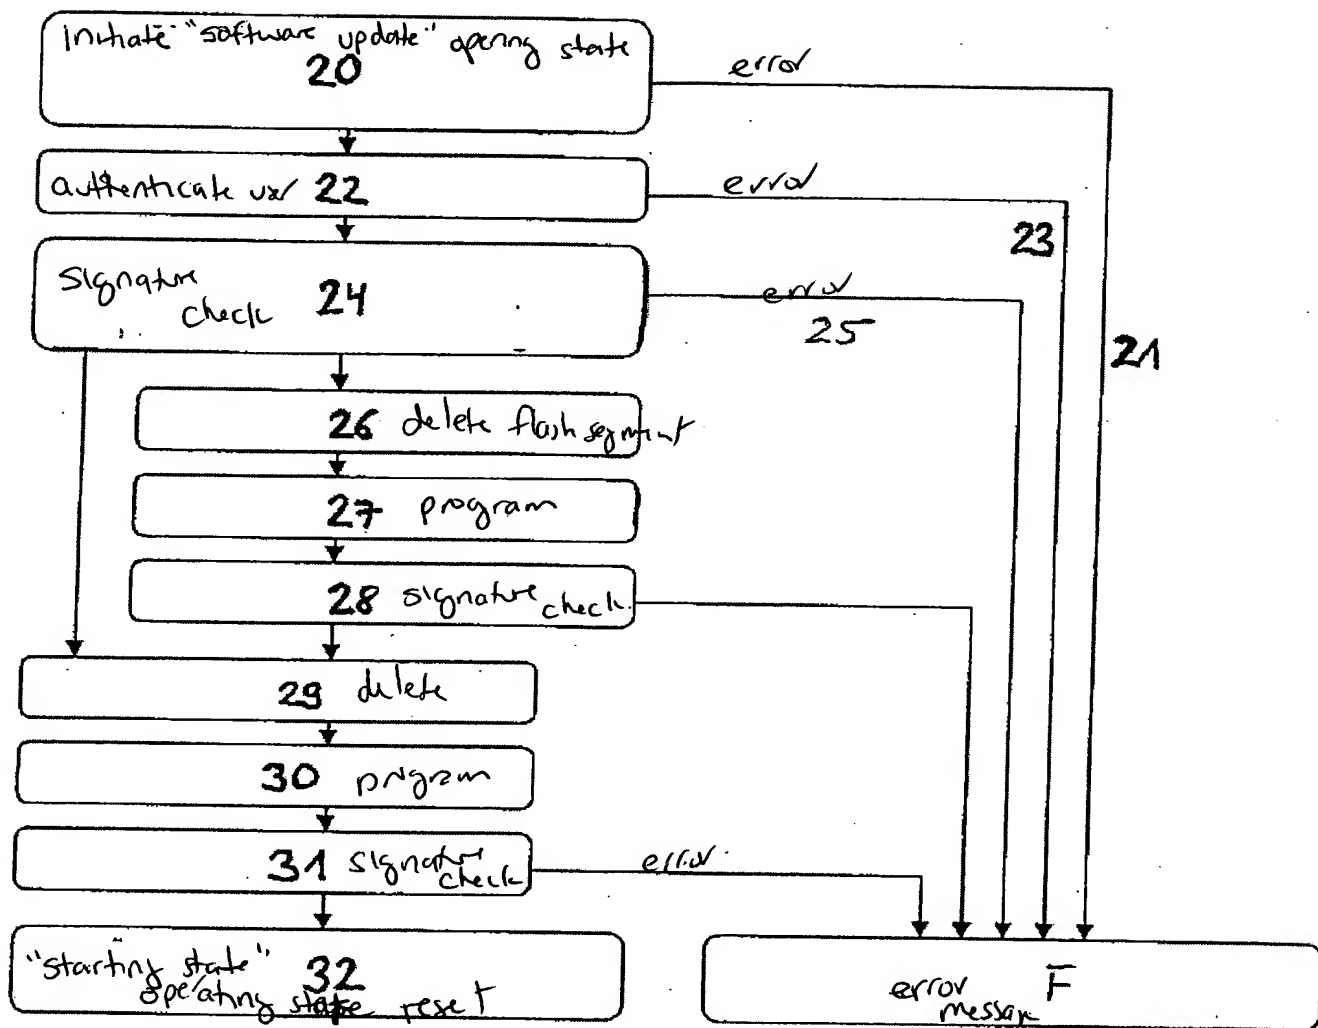 initiate "software update" opering state
20
error
authenticate user 22
error
23
signature
check 24
error
25
21
26 delete flash segment
27 program
28 signature check
29 delete
30 program
31 signature check
error
"starting state" 32
operating state reset
error message F